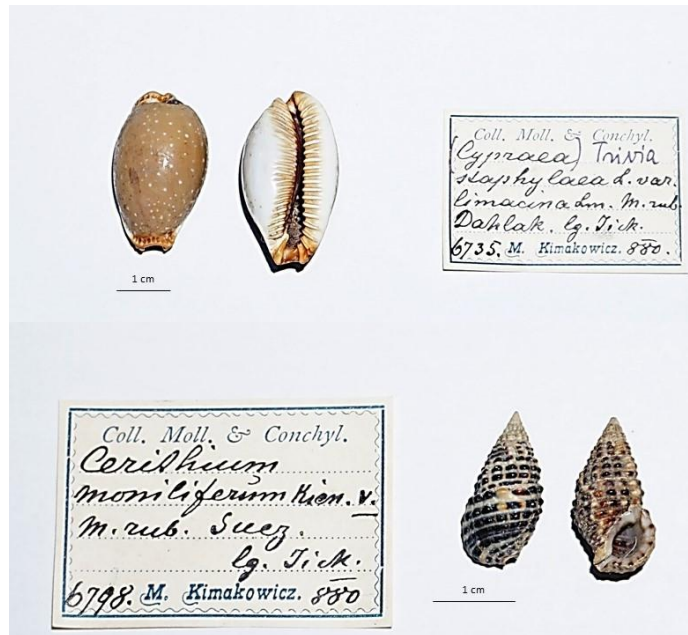 1 cm
Coll. Moll. & Conchyl.
(Cypraea) Trivia
staphylaea L. var.
limacina Lm. M. rub.
Dahlak. lg. Jick.
6735. M. Kimakowicz. 880.
Coll. Moll. & Conchyl.
Cerithium
moniliferum Kien. v.
M. rub. Suez.
lg. Jick.
6798. M. Kimakowicz. 880
1 cm